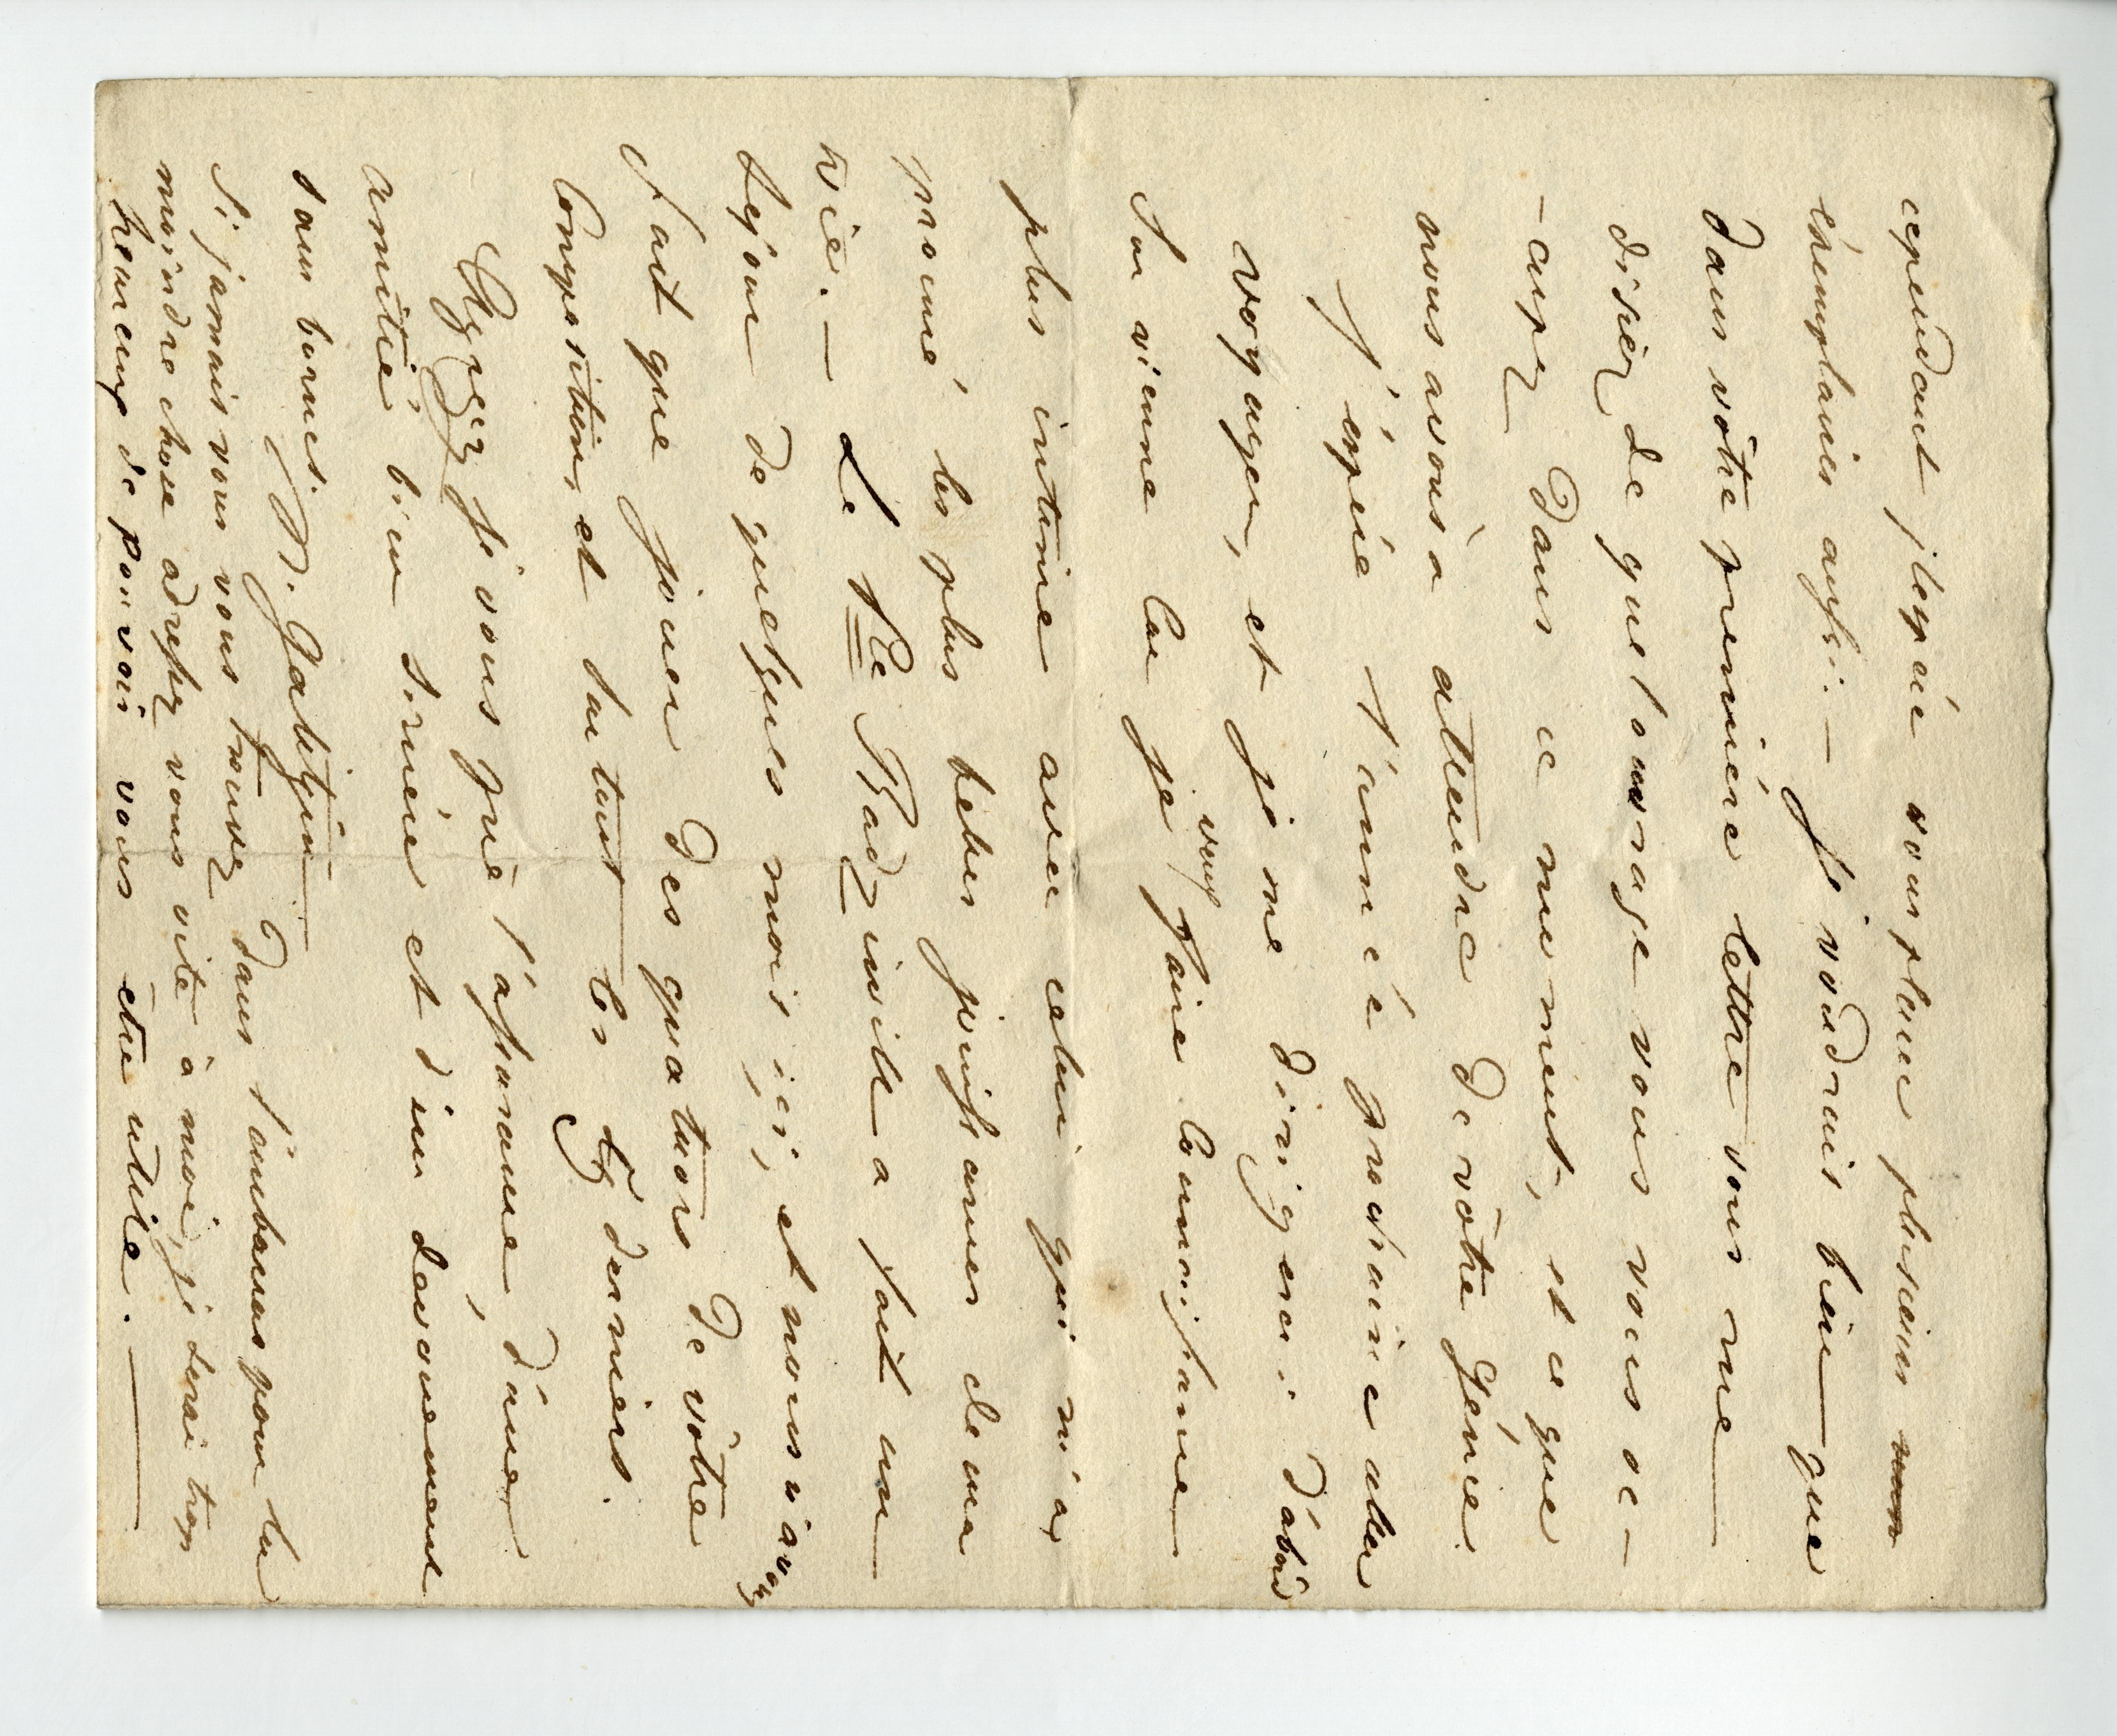 cependant j'espér vous placer plusieurs
éxemplaires aussi. — Je voudrais bien que
dans vôtre première lettre vous me
disiez de quel ouvrage vous vous oc-
-cupez dans ce mument, et ce que
nous avons à attendre de vôtre génie.
J'éspére l'année prochaine aller
voyager, et je me dirigerai d'abord
sur vienne car je veux faire connaissance
plus intime avec celui qui m'a
procuré les plus belles jouissances de ma
vie. — Le P<u>ce</u> Radziwill a fait un
sejour de quelques mois ici, et nous avons
fait que jouer des quatuors de vôtre
Composition, et surtout les 3 derniers.
Agréez je vous prie l'assurance, d'une
amitié, bien sincére et d'un devouement
sans bornes. N. Galitzin
Si jamais vous vous trouvez dans l'embarras pour la
moindre chose adressez vous vite à moi, je serai trop
heureux de pouvoir vous être utile. —